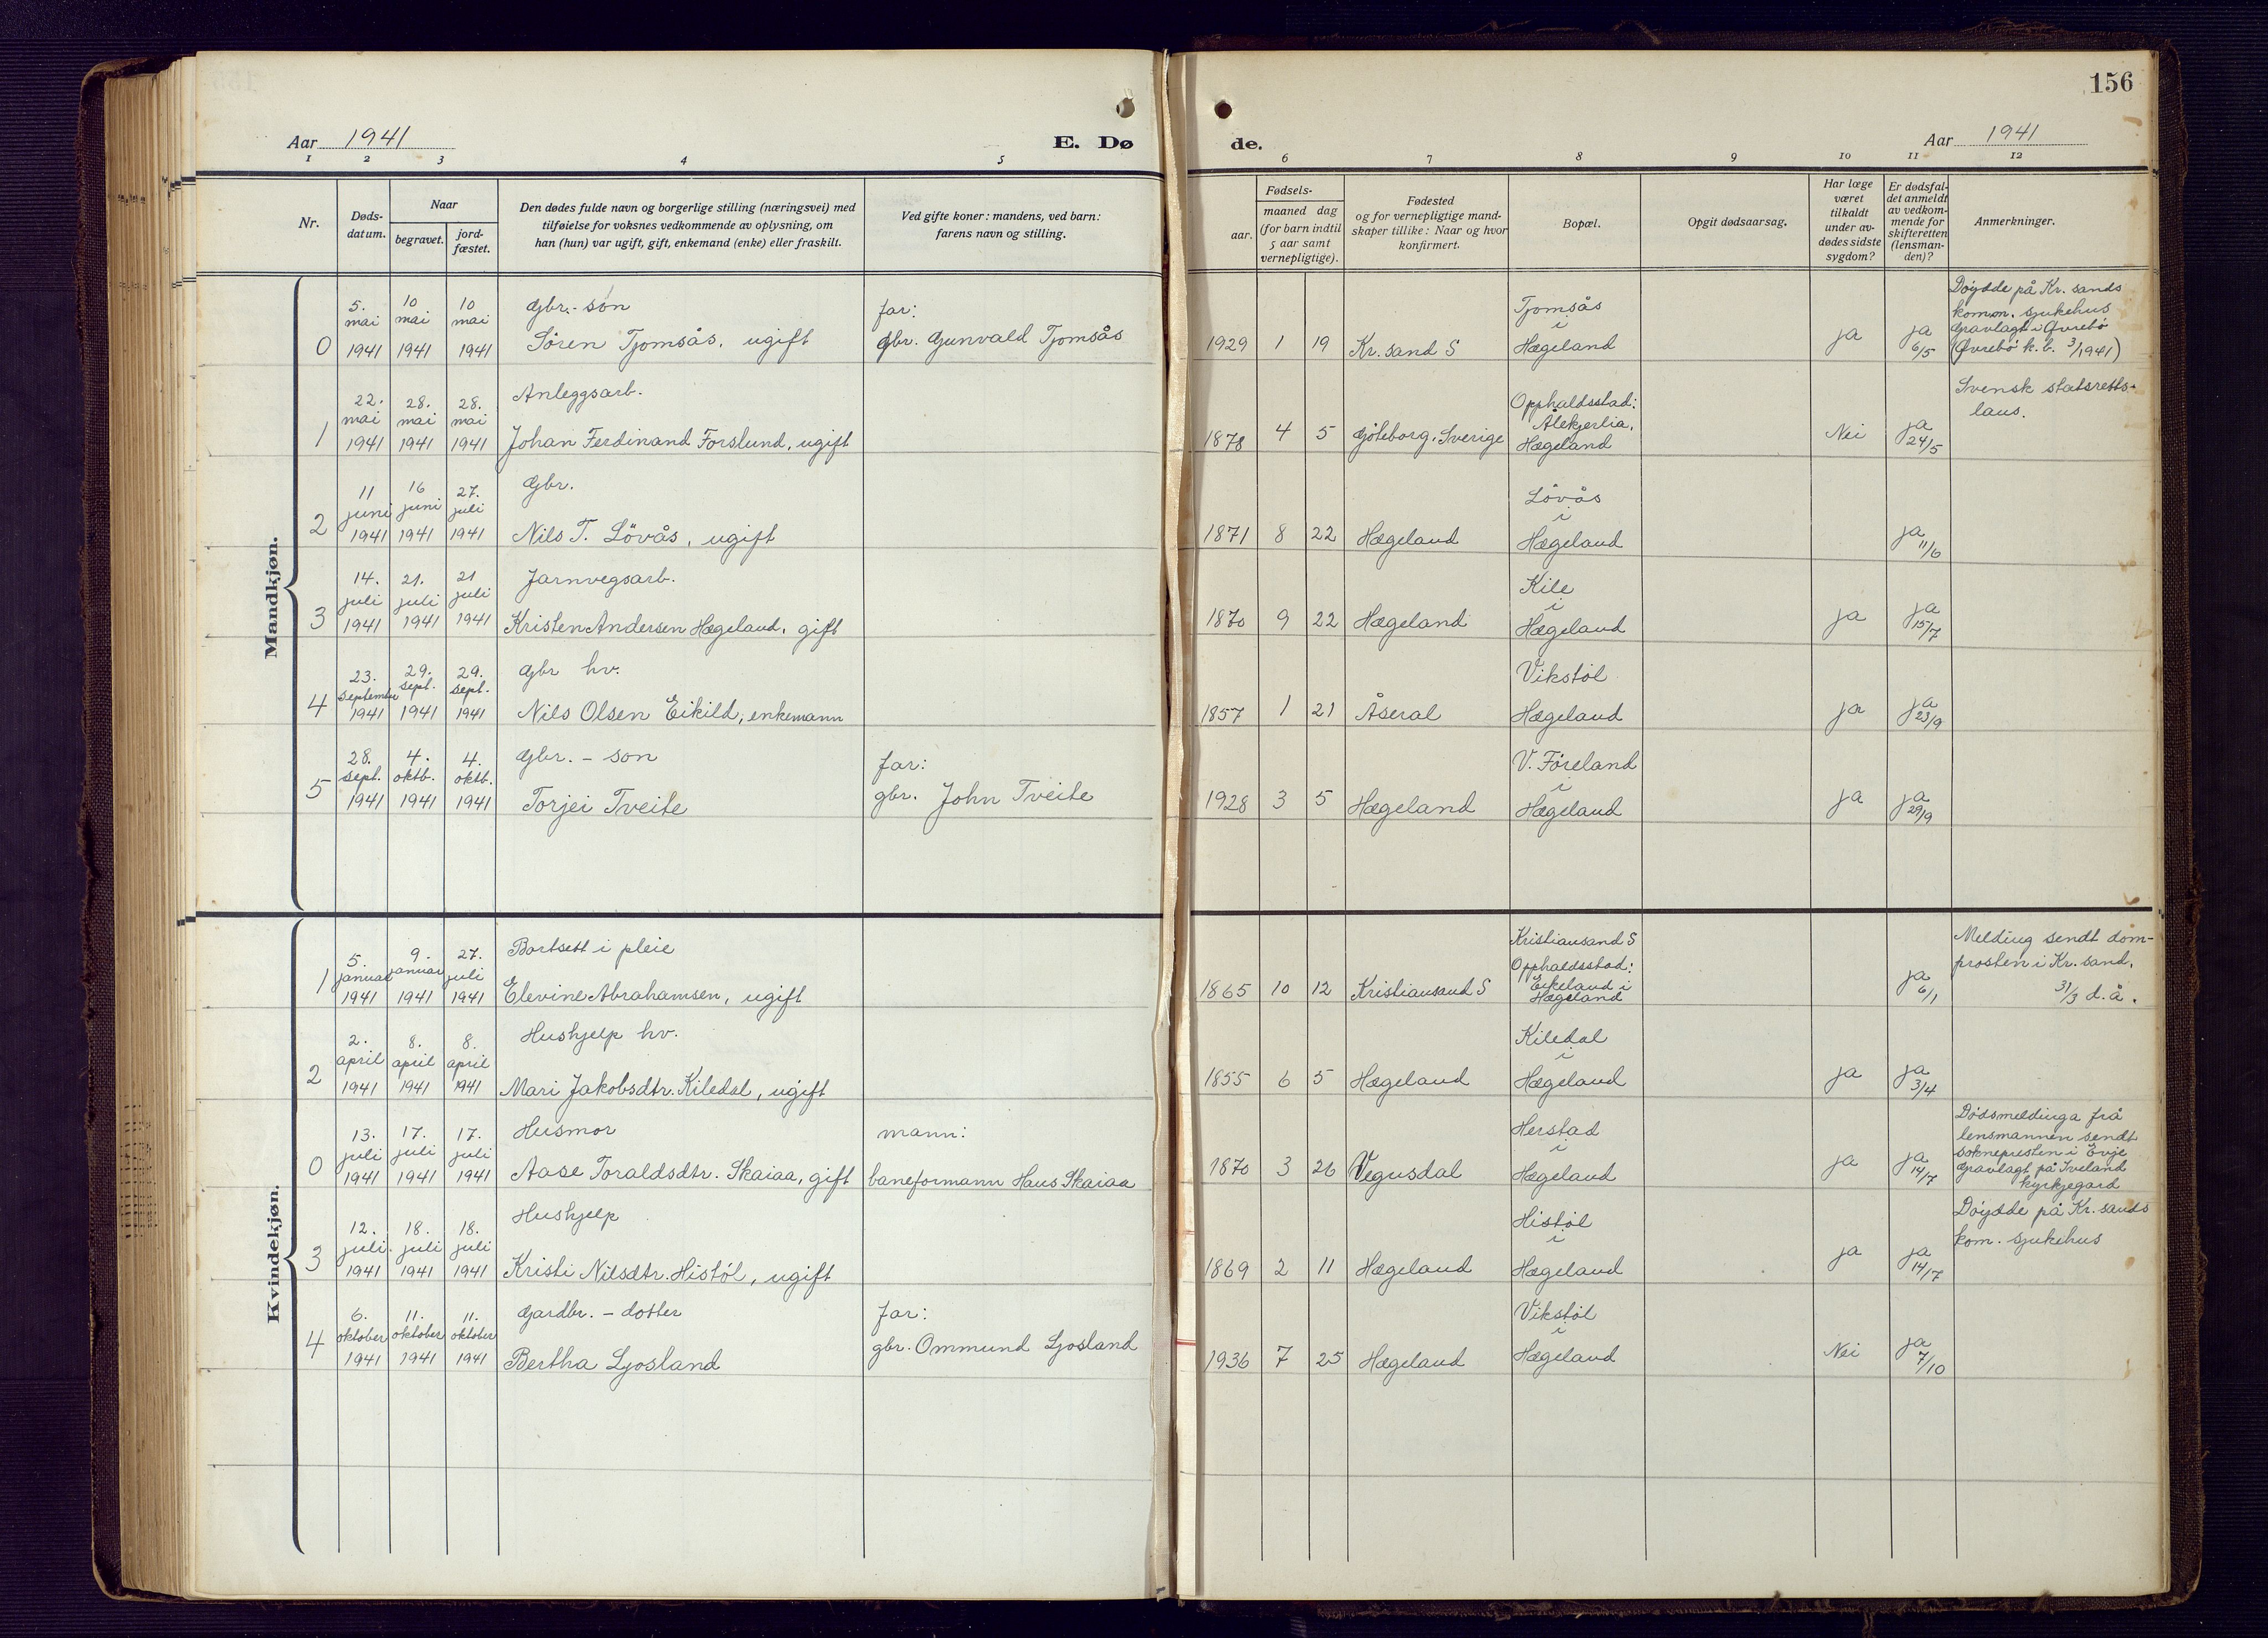 156
Aar 1941
E. Dø
de.
Aar 1941
1 2 3 4 5
6 7 8 9 10 11 12
Nr.
Døds-
datum.
Naar
begravet.
jord-
fæstet.
Den dødes fulde navn og borgerlige stilling (næringsvei) med
tilføielse for voksnes vedkommende av oplysning, om
han (hun) var ugift, gift, enkemand (enke) eller fraskilt.
Ved gifte koner: mandens, ved barn:
farens navn og stilling.
Fødsels-
aar.
maaned dag
(for barn indtil
5 aar samt
vernepligtige).
Fødested
og for vernepligtige mand-
skaper tillike: Naar og hvor
konfirmert.
Bopæl.
Opgit dødsaarsag.
Har læge
været
tilkaldt
under av-
dødes sidste
sygdom?
Er dødsfal-
det anmeldt
av vedkom-
mende for
skifteretten
(lensman-
den)?
Anmerkninger.
Mandkjøn.
0
5.
mai
1941
10
mai
1941
10
mai
1941
Gbr.-son
Søren Tjomsås, ugift
far:
gbr. Gunvald Tjomsås
1929 1 19
Kr.sand S
Tjomsås
i
Hægeland
ja
ja
6/5
Døydde på Kr. sands
komm. sjukehus
Gravlagt i Øvrebö
(Øvrebö k.b. 3/1941)
1
22.
mai
1941
28.
mai
1941
28.
mai
1941
Anleggsarb.
Johan Ferdinand Forslund, ugift
1878 4 5
Göteborg, Sverige
Opphaldsstad:
Ålekjerlia,
Hægeland
Nei
ja
24/5
Svensk statsretts-
laus.
2
11
juni
1941
16
juni
1941
27.
juli
1941
Gbr.
Nils T. Lövås, ugift
1871 8 22
Hægeland
Lövås
i
Hægeland
ja
11/6
3
14.
juli
1941
21.
juli
1941
21
juli
1941
Jarnvegsarb.
Kristen Andersen Hægeland, gift
1870 9 22
Hægeland
Kile
i
Hægeland
ja
ja
15/7
4
23.
september
1941
29.
sept.
1941
29.
sept.
1941
Gbr hv.
Nils Olsen Eikild, enkemann
1857 1 21
Åseral
Vikstøl
Hægeland
ja
ja
23/9
5
28.
sept.
1941
4.
oktb.
1941
4.
oktb.
1941
Gbr. - son
Torjei Tveite
far:
gbr. John Tveite
1928 3 5
Hægeland
V. Föreland
i
Hægeland
ja
ja
29/9
Kvindekjøn.
1
5.
januar
1941
9.
januar
1941
27.
juli
1941
Bortsett i pleie
Elevine Abrahamsen, ugift
1865 10 12
Kristiansand S
Kristiansand S
Opphaldsstad:
Eikeland i
Hægeland
ja
6/1
Melding sendt dom-
prosten i Kr. sand,
31/3 d.å.
2
2.
april
1941
8.
april
1941
8.
april
1941
Hushjelp hv.
Mari Jakobsdtr. Kiledal, ugift
1855 6 5
Hægeland
Kiledal
i
Hægeland
ja
ja
3/4
0
13.
juli
1941
17.
juli
1941
17.
juli
1941
Husmor
Aase Toraldsdtr. Skaiaa, gift
mann:
baneformann Hans Skaiaa
1870 3 26
Vegusdal
Herstad
i
Hægeland
ja
ja
14/7
Dødsmeldinga frå
lensmannen sendt
soknepresten i Evje
Gravlagt på Iveland
kyrkjegard
3
12.
juli
1941
18.
juli
1941
18.
juli
1941
Hushjelp
Kristi Nilsdtr. Histöl, ugift
1869 2 11
Hægeland
Histøl
i
Hægeland
ja
ja
14/7
Døydde på Kr. sands
kom. sjukehus
4
6.
oktober
1941
11.
oktober
1941
11.
oktober
1941
Gardbr. - dotter
Bertha Ljosland
far:
gbr. Ommund Ljosland
1936 7 25
Hægeland
Vikstøl
i
Hægeland
Nei
ja
7/10